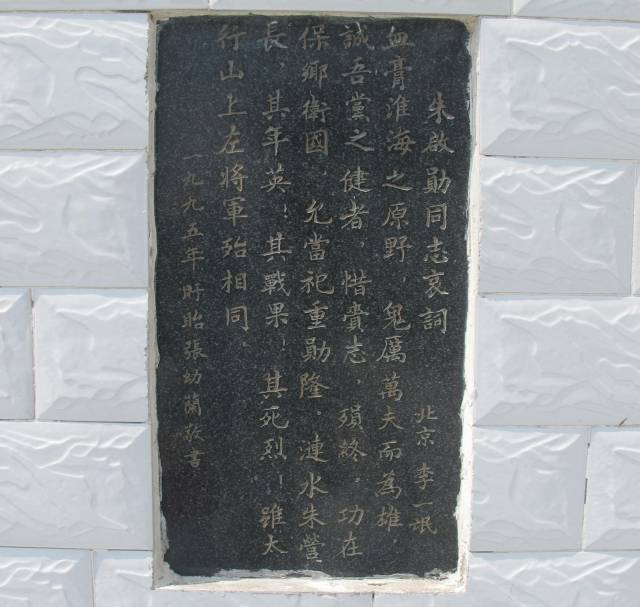 朱啟勛同志哀詞
北京 李一氓
血膏淮海之原野，鬼厲萬夫而為雄，
誠吾黨之健者，惜賫志，殞終。功在
保鄉衛國，允當祀重勛隆。漣水朱營
長，其年英！其戰果！其死烈！雖太
行山上左將軍殆相同。
一九九五年盱眙張幼蘭敬書